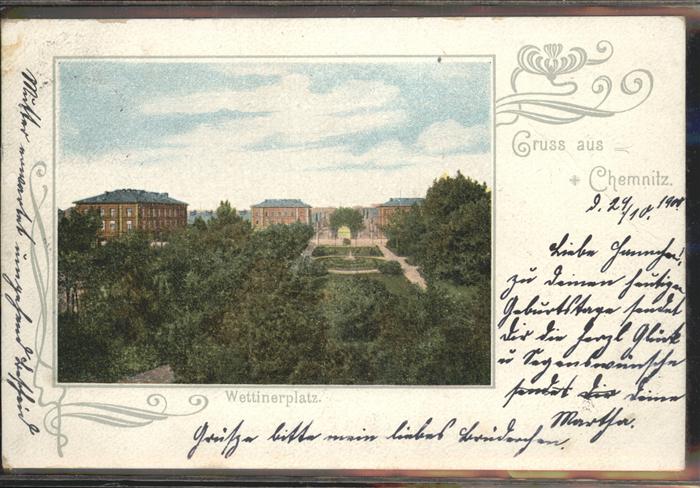 Gruss aus
Chemnitz.
d. 24/10. 1901
Liebe
zu deinem heutigen
Geburtstage sendet
Dir die herzl Glück
u Segenswünsche
sendet die deine
Martha.
Wettinerplatz.
Grüße bitte mein liebes Brüderchen.
Mutter erwartet umgehend Bescheid